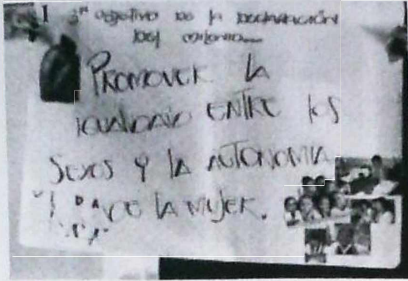 3er objetivo de la Declaración
del milenio....
PROMOVER LA
IGUALDAD ENTRE LOS
SEXOS Y LA AUTONOMIA
DE LA MUJER.